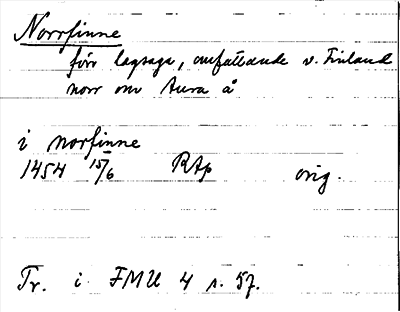 Norrfinne
förr lagsaga, omfattande v. Finland
norr om Aura å
i norfinne
1454 15/6 RAp orig.
Tr. i FMU 4 s. 57.